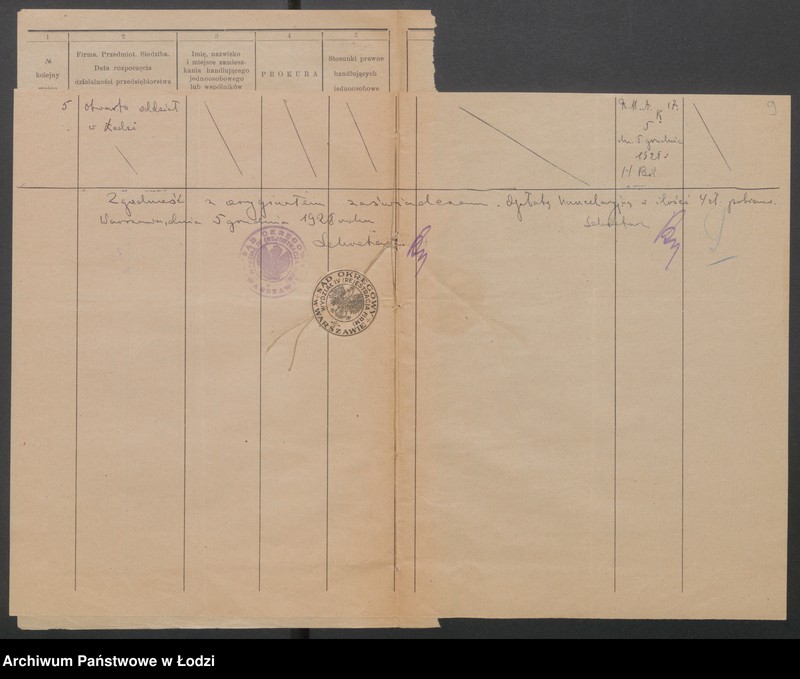 1 2 3 4 5
№ kolejny
Firma. Przedmiot. Siedziba.
Data rozpoczęcia
działalności przedsiębiorstwa
Imię, nazwisko
i miejsce zamiesz-
kania handlującego
jednoosobowego
lub wspólników
PROKURA
Stosunki prawne
handlujących
jednoosobowe
9
5 Otwarto oddział
w Łodzi
5
dn. 5 grudnia
1928
Zgodność z oryginałem zaświadczam. Opłatę kancelaryjną w ilości 4 zł. pobrano.
Warszawa, dnia 5 grudnia 1928 roku
Sekretarz
Sekretarz
SĄD OKRĘGOWY
W WARSZAWIE
SĄD OKRĘGOWY
WYDZIAŁ IV (REJESTRACJA FIRM)
W WARSZAWIE
Archiwum Państwowe w Łodzi